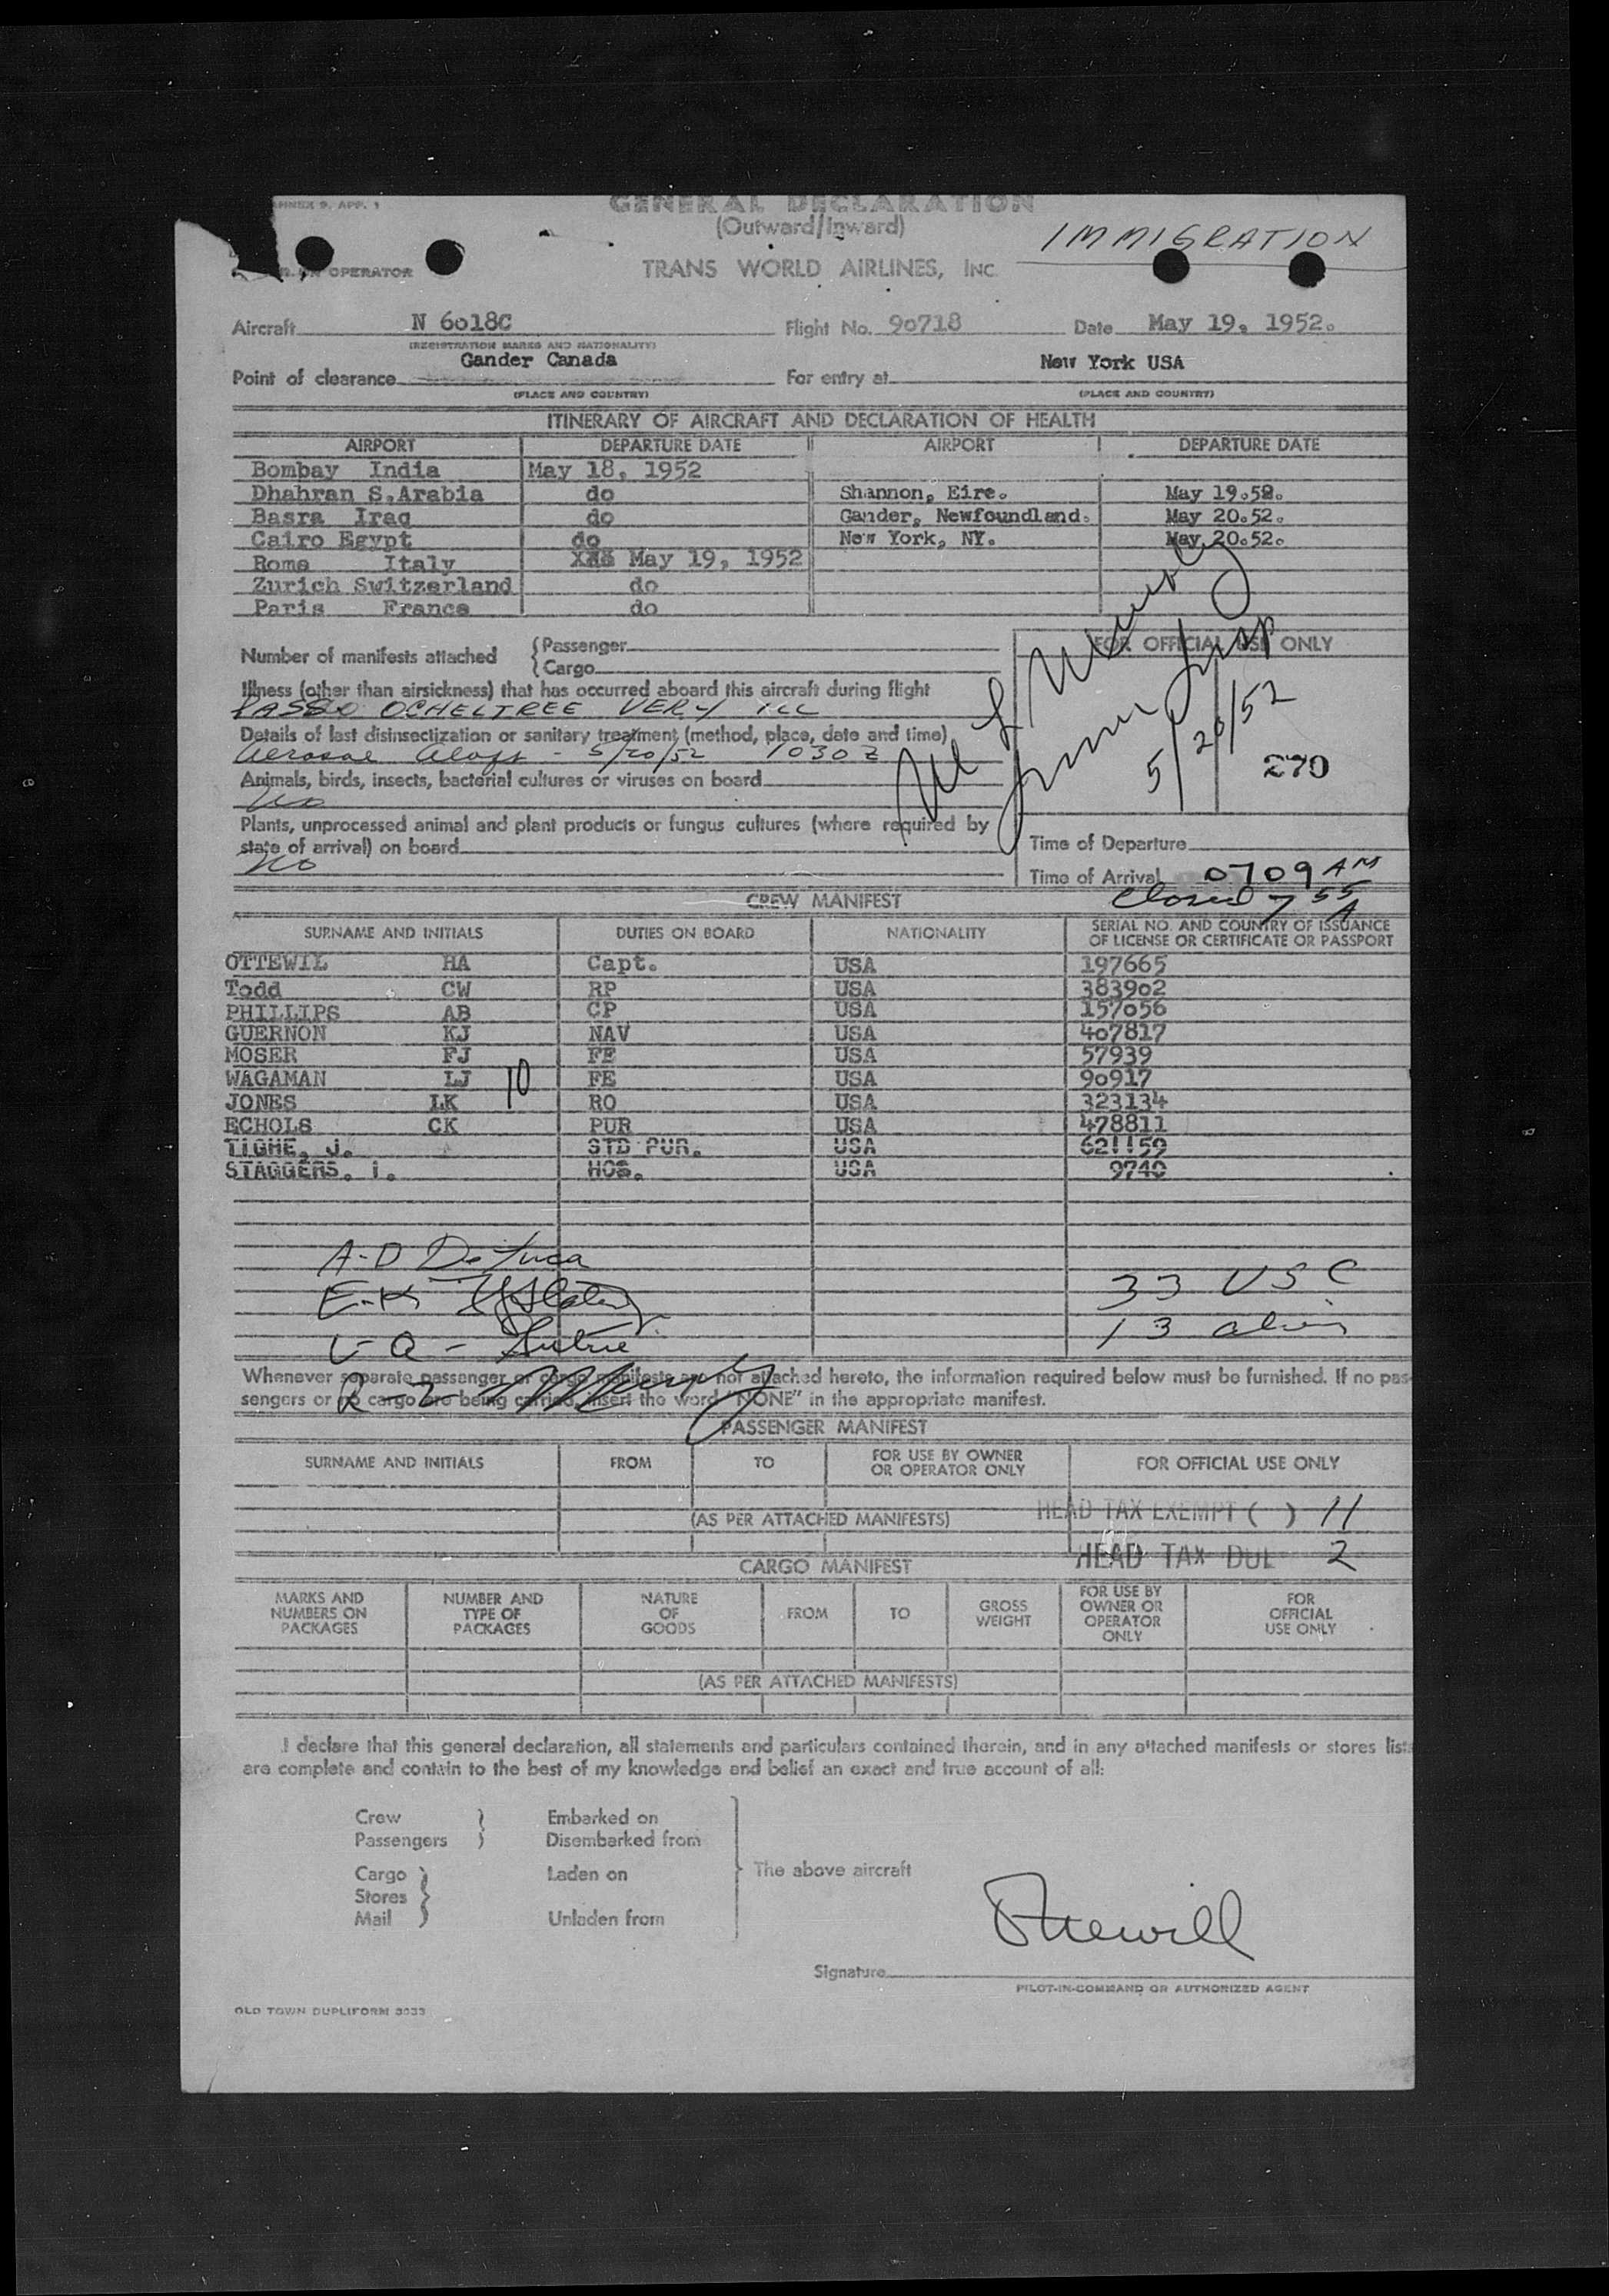 ANNEX 9, APP. 1
GENERAL DECLARATION
(Outward/Inward)
IMMIGRATION
OPERATOR
TRANS WORLD AIRLINES, INC.
Aircraft N 6018C Flight No. 90718 Date May 19, 1952.
(REGISTRATION MARKS AND NATIONALITY)
Point of clearance Gander Canada For entry at New York USA
(PLACE AND COUNTRY) (PLACE AND COUNTRY)
ITINERARY OF AIRCRAFT AND DECLARATION OF HEALTH
AIRPORT DEPARTURE DATE AIRPORT DEPARTURE DATE
Bombay India May 18, 1952
Dhahran S.Arabia do Shannon, Eire. May 19.52.
Basra Iraq do Gander, Newfoundland. May 20.52.
Cairo Egypt do New York, NY. May 20.52.
Rome Italy May 19, 1952
Zurich Switzerland do
Paris France do
Number of manifests attached { Passenger
{ Cargo
FOR OFFICIAL USE ONLY
Illness (other than airsickness) that has occurred aboard this aircraft during flight
OCHELTREE VERY ILL
Details of last disinsectization or sanitary treatment (method, place, date and time)
Aerosol 5/20/52 1030 Z
5/20/52
270
Animals, birds, insects, bacterial cultures or viruses on board
No
Plants, unprocessed animal and plant products or fungus cultures (where required by
state of arrival) on board
No
Time of Departure
Time of Arrival 0709 AM
Closed 7 55 A
CREW MANIFEST
SURNAME AND INITIALS DUTIES ON BOARD NATIONALITY SERIAL NO. AND COUNTRY OF ISSUANCE OF LICENSE OR CERTIFICATE OR PASSPORT
OTTEWIL HA Capt. USA 197665
Todd CW RP USA 383902
PHILLIPS AB CP USA 157056
GUERNON KJ NAV USA 407817
MOSER FJ FE USA 57939
WAGAMAN LJ FE USA 90917
10
JONES LK RO USA 323134
ECHOLS CK PUR USA 478811
TIGHE, J. STD PUR. USA 62!!59
STAGGERS, I. HOS. USA 9740
A-D De Luca
E-K
33 USC
I-Q -
13 alien
R-Z -
Whenever separate passenger or cargo manifests are not attached hereto, the information required below must be furnished. If no pas-
sengers or no cargo are being carried, insert the word "NONE" in the appropriate manifest.
PASSENGER MANIFEST
SURNAME AND INITIALS FROM TO FOR USE BY OWNER OR OPERATOR ONLY FOR OFFICIAL USE ONLY
HEAD TAX EXEMPT ( ) 11
(AS PER ATTACHED MANIFESTS)
HEAD TAX DUE 2
CARGO MANIFEST
MARKS AND NUMBERS ON PACKAGES NUMBER AND TYPE OF PACKAGES NATURE OF GOODS FROM TO GROSS WEIGHT FOR USE BY OWNER OR OPERATOR ONLY FOR OFFICIAL USE ONLY
(AS PER ATTACHED MANIFESTS)
I declare that this general declaration, all statements and particulars contained therein, and in any attached manifests or stores lists
are complete and contain to the best of my knowledge and belief an exact and true account of all:
Crew } Embarked on
Passengers } Disembarked from
Cargo } Laden on The above aircraft
Stores }
Mail } Unladen from
Ottewill
Signature
PILOT-IN-COMMAND OR AUTHORIZED AGENT
OLD TOWN DUPLIFORM 3033